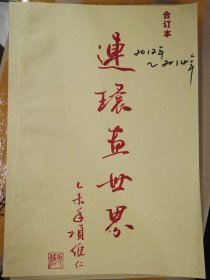 合订本
2012年
~2014年
連環畫世界
乙未年项維仁